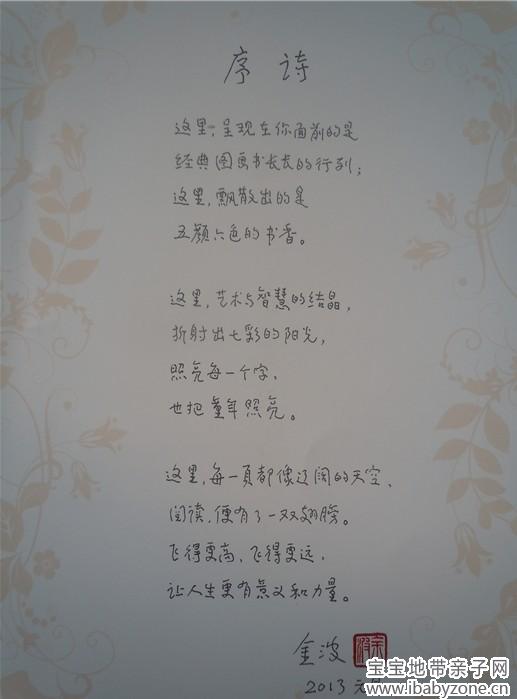 序诗
这里，呈现在你面前的是
经典图画书长长的行列；
这里，飘散出的是
五颜六色的书香。
这里，艺术与智慧的结晶，
折射出七彩的阳光，
照亮每一个字，
也把童年照亮。
这里，每一页都像辽阔的天空，
阅读，便有了一双翅膀。
飞得更高，飞得更远，
让人生更有意义和力量。
金波
2013 元
宝宝地带亲子网
www.ibabyzone.cn